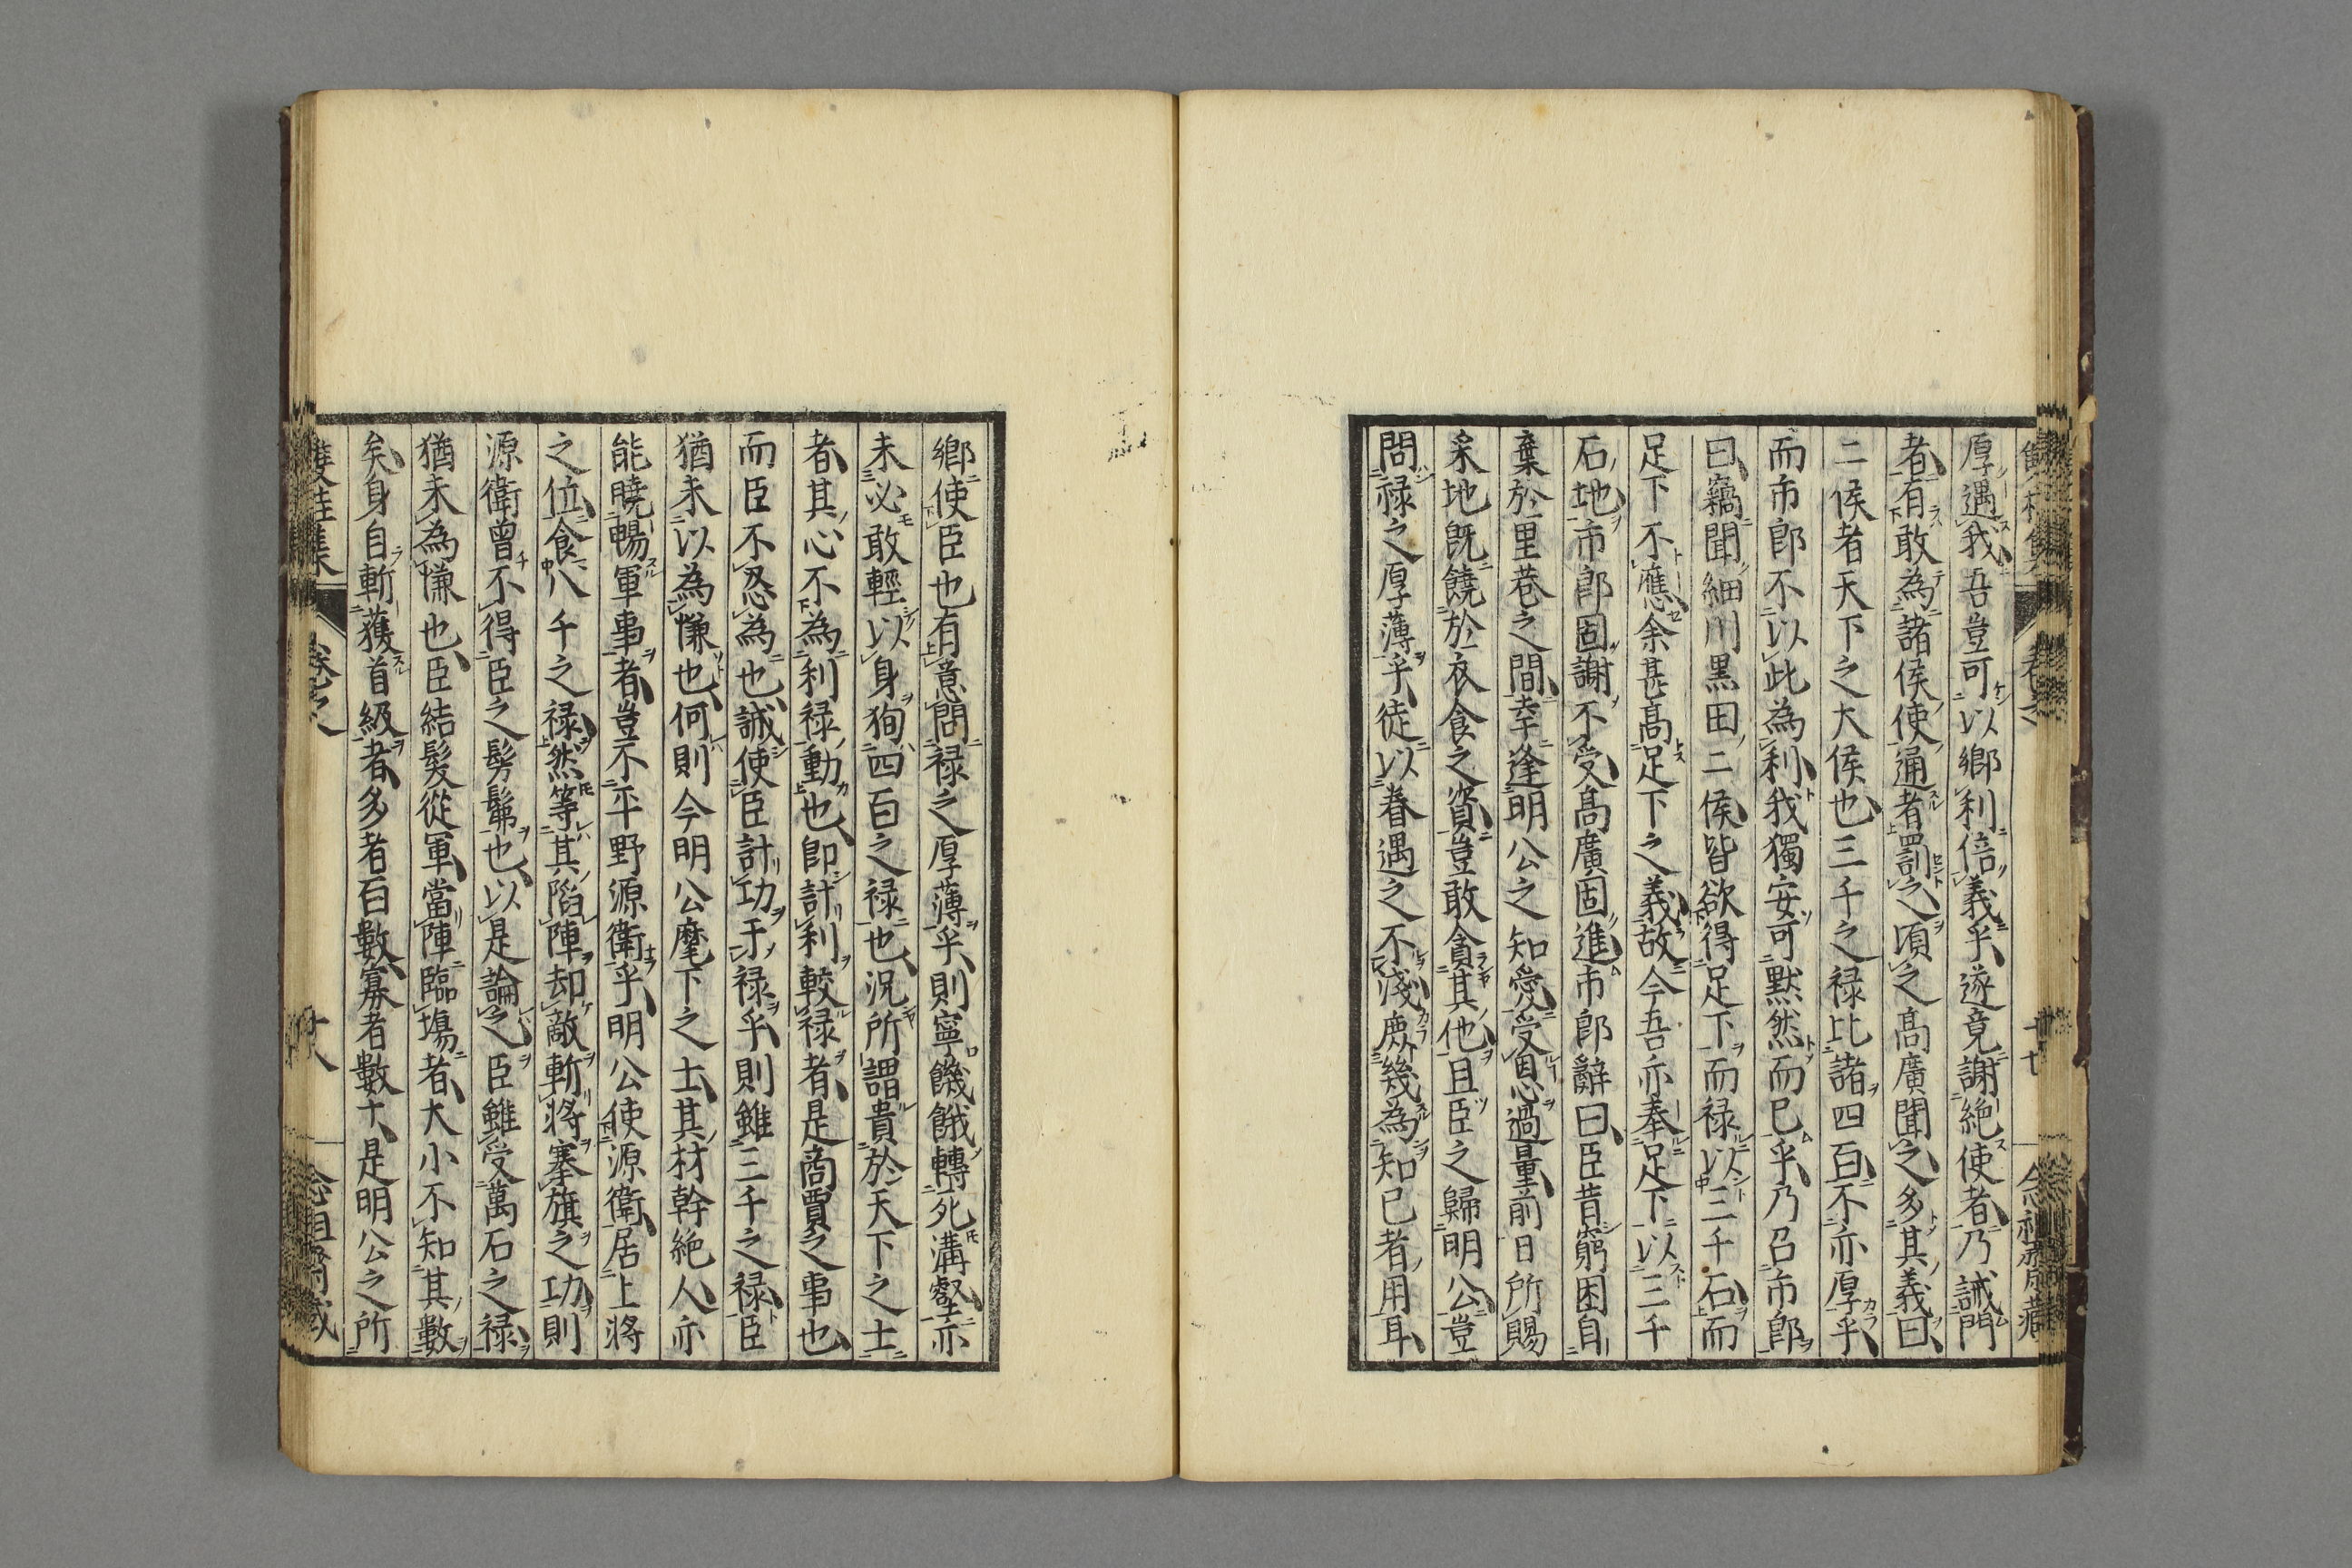 厚遇我吾豈可以郷利倍義乎遂竟謝絶使者乃誡門
者有敢為諸侯使通者罰之頃之髙廣聞之多其義曰
二侯者天下之大侯也三千之禄比諸四百不亦厚乎
而市郎不以此為利我獨安可默然而已乎乃召市郎
曰竊聞細川黒田二侯皆欲得足下而禄以三千石而
足下不應余甚髙足下之義故今吾亦奉足下以三千
石地市郎固謝不受髙廣固進市郎辭曰臣昔窮困自
棄於里巷之間幸逢明公之知愛受恩過量前日所賜
釆地既饒於衣食之資豈敢貪其他且臣之歸明公豈
問禄之厚薄乎徒以眷遇之不淺庶幾為知已者用耳
十七
念祖齋藏
郷使臣也有意問禄之厚薄乎則寧饑餓轉死溝壑亦
未必敢輕以身狥四百之禄也况所謂貴於天下之士
者其心不為利禄動也卽計利較禄者是商賈之事也
而臣不忍為也誠使臣計功于禄乎則雖三千之禄臣
猶未以為慊也何則今明公麾下之士其材幹絶人亦
能曉暢軍事者豈不平野源衛乎明公使源衛居上將
之位食八千之禄然等其陷陣却敵斬將搴旗之功則
源衛曽不得臣之髣髴也以是論之臣雖受萬石之禄
猶未為慊也臣結髮從軍當陣臨塲者大小不知其數
矣身自斬獲首級者多者百數寡者數十是明公之所
雙桂集
十八